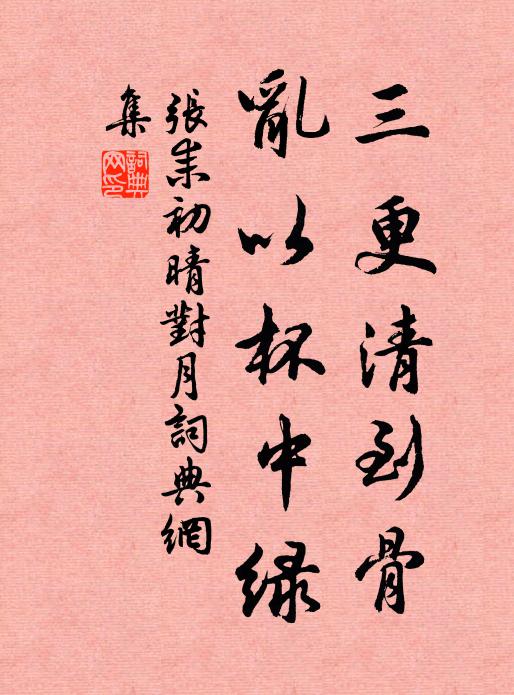 三更清到骨
亂以杯中緑
張耒初晴對月詞典網
集
詞典
网印